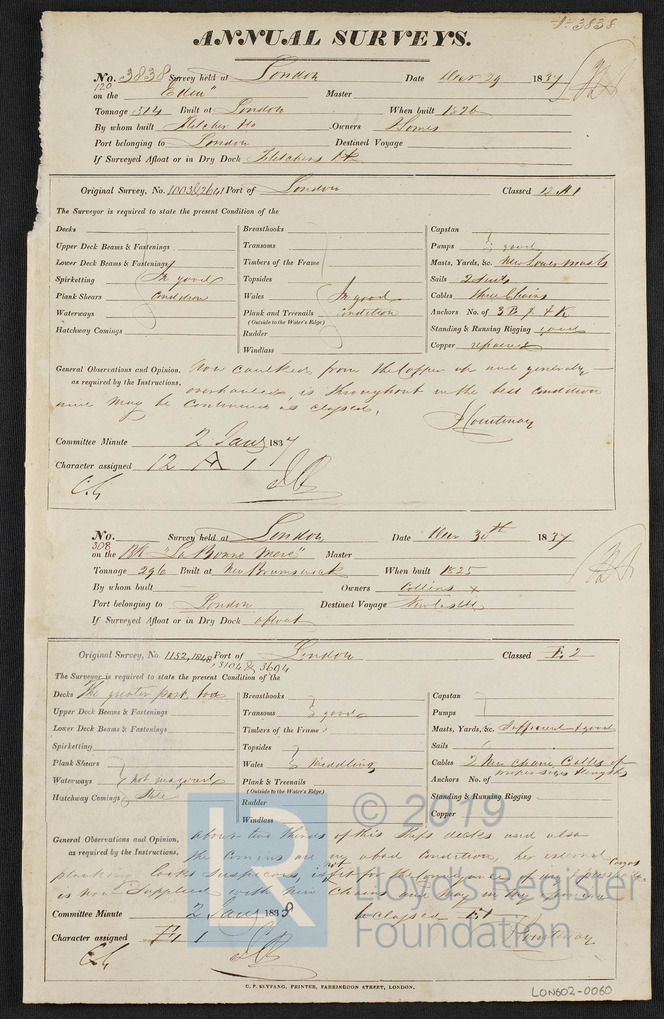 3838
ANNUAL SURVEYS.
No. 3838 Survey held at London Date Decr 29 1837
120
on the "Eden" Master
Tonnage 314 Built at London When built 1826
By whom built Fletcher Owners Somes
Port belonging to London Destined Voyage
If Surveyed Afloat or in Dry Dock Fletchers Dk
Original Survey, No. 1003 & 2641 Port of London Classed 12 A 1
The Surveyor is required to state the present Condition of the
Decks
Upper Deck Beams & Fastenings
Lower Deck Beams & Fastenings
Spirketting In good
Plank Shears condition
Waterways
Hatchway Comings
Breasthooks
Transoms
Timbers of the Frame
Topsides
Wales In good
Plank and Treenails condition
(Outside to the Water's Edge)
Rudder
Windlass
Capstan
Pumps good
Masts, Yards, &c. New Lower Masts
Sails 2 Suits
Cables three Chains
Anchors No. of 3 B & K
Standing & Running Rigging good
Copper repaired
General Observations and Opinion, Now caulked from the Copper up and generally
as required by the Instructions, overhauled, is throughout in the best condition
and may be continued as classed.
Courtenay
Committee Minute 2 Jany 1837
Character assigned 12 A 1
No. Survey held at London Date Decr 30th 1837
308
on the Bk "La Bonne Mere" Master
Tonnage 296 Built at New Brunswick When built 1825
By whom built Owners Collins x
Port belonging to London Destined Voyage Newcastle
If Surveyed Afloat or in Dry Dock afloat
Original Survey, No. 1152, 1848, 3104 & 3604 Port of London Classed E. 2
The Surveyor is required to state the present Condition of the
Decks The greater part bad
Upper Deck Beams & Fastenings
Lower Deck Beams & Fastenings
Spirketting
Plank Shears
Waterways not in good
Hatchway Comings State
Breasthooks
Transoms good
Timbers of the Frame
Topsides
Wales Middling
Plank & Treenails
(Outside to the Water's Edge)
Rudder
Windlass
Capstan
Pumps
Masts, Yards, &c. Sufficient & good
Sails
Cables 2 New Chain Cables of
Anchors No. of proper sizes & lengths
Standing & Running Rigging
Copper
General Observations and Opinion, About two thirds of this Ships decks and also
as required by the Instructions, the Comings are in a bad Condition, her external
planking looks suspicious, is not fit for the conveyance of dry Cargos
is now Supplied with New Chains and may in my opinion
be classed E 1
Courtenay
Committee Minute 2 Jany 1838
Character assigned E 1
C. F. SEYFANG, PRINTER, FARRINGDON STREET, LONDON.
LON602-0060
© 2019
Lloyd's Register
Foundation
LR